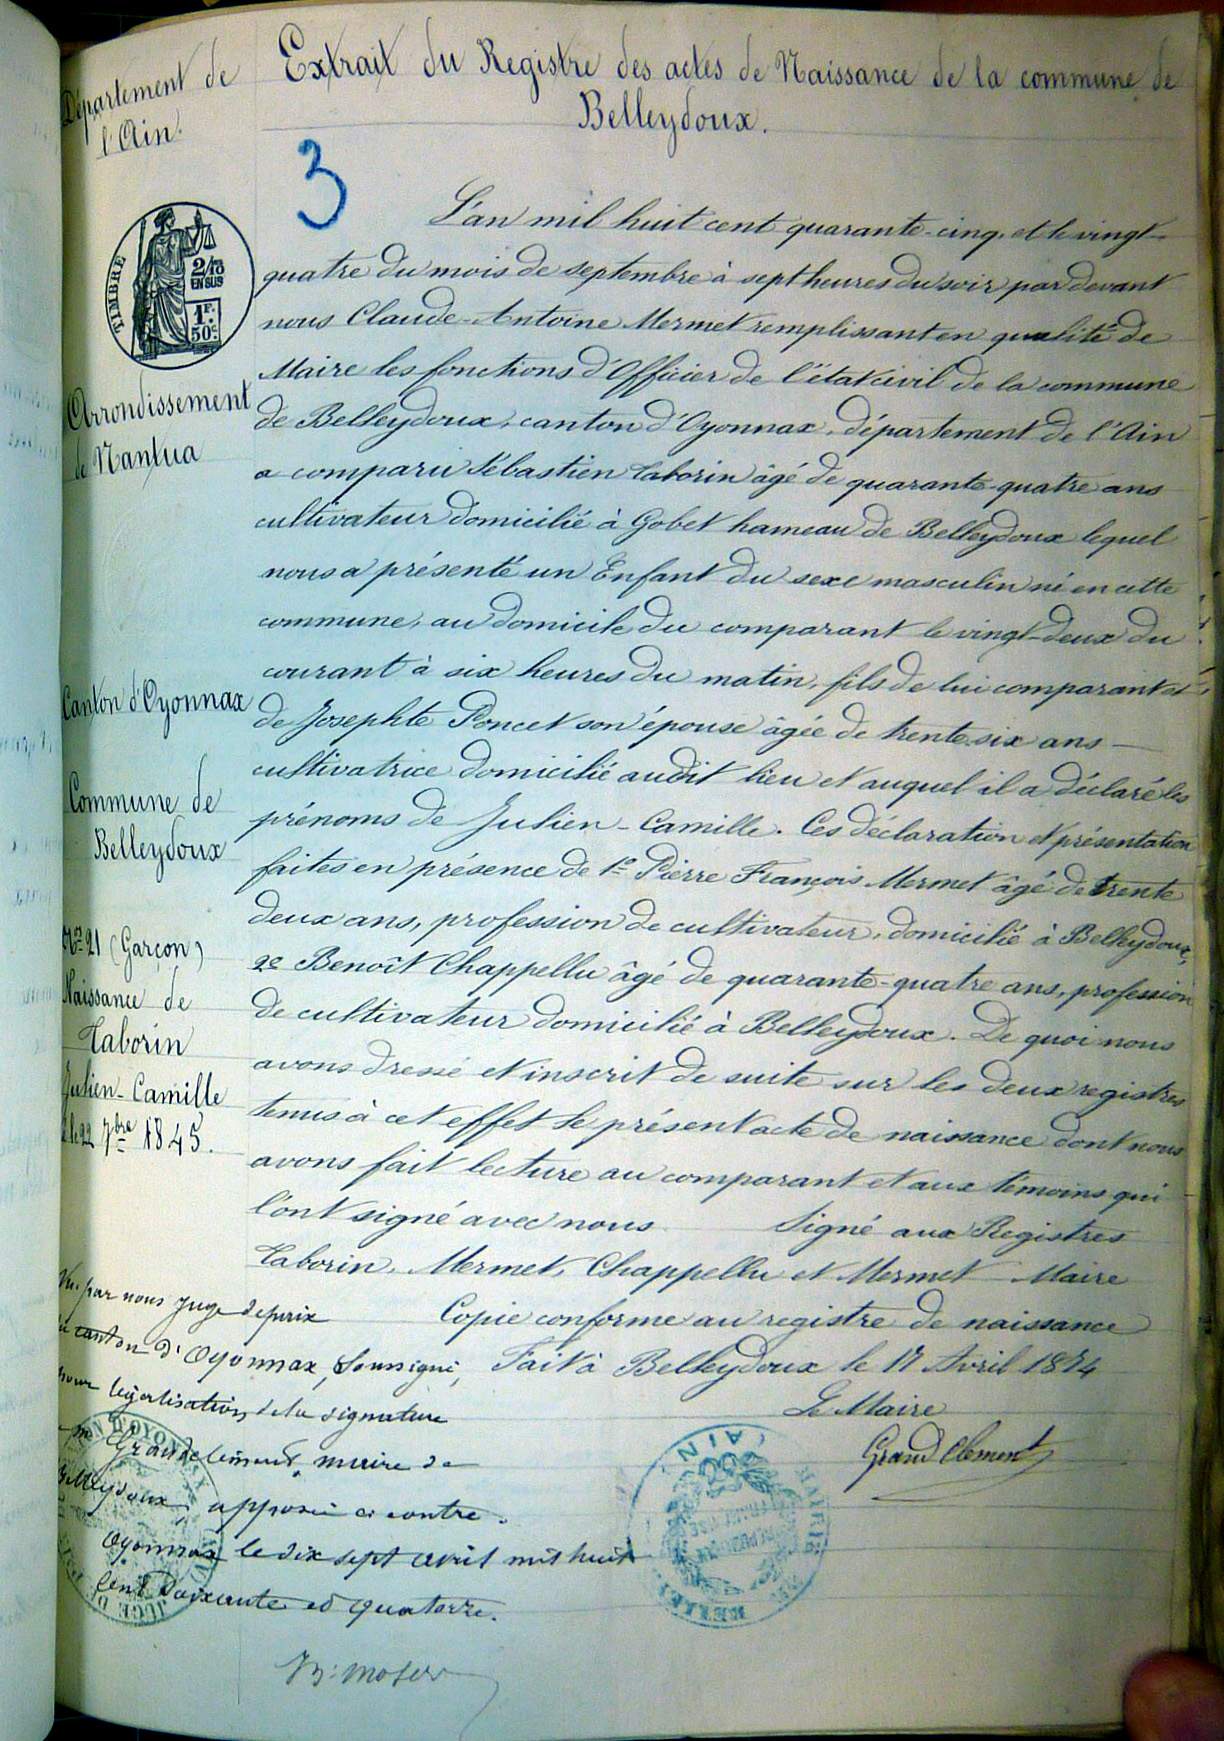 Extrait du Registre des actes de Naissance de la commune de
Belleydoux.
Département de
l'Ain.
3
TIMBRE
2/10
EN SUS
1F.
50c.
Arrondissement
de Nantua
Canton d'Oyonnax
Commune de
Belleydoux
No 21 (Garçon)
Naissance de
Taborin
Julien-Camille
le 22 7bre 1845.
L'an mil huit cent quarante-cinq, et le vingt-
quatre du mois de septembre à sept heures du soir par devant
nous Claude-Antoine Mermet remplissant en qualité de
Maire les fonctions d'Officier de l'état civil de la commune
de Belleydoux, canton d'Oyonnax, département de l'Ain
a comparu Sébastien Taborin âgé de quarante-quatre ans
cultivateur domicilié à Gobet hameau de Belleydoux lequel
nous a présenté un Enfant du sexe masculin né en cette
commune, au domicile du comparant le vingt-deux du
courant à six heures du matin, fils de lui comparant et
de Josephte Poncet son épouse âgée de trente-six ans —
cultivatrice domicilié audit lieu et auquel il a déclaré les
prénoms de Julien-Camille. Ces déclaration et présentation
faites en présence de 1o Pierre François Mermet âgé de trente
deux ans, profession de cultivateur, domicilié à Belleydoux,
2e Benoît Chappellu âgé de quarante-quatre ans, profession
de cultivateur domicilié à Belleydoux. De quoi nous
avons dressé et inscrit de suite sur les deux registres
tenus à cet effet le présent acte de naissance dont nous
avons fait lecture au comparant et aux témoins qui
l'ont signé avec nous Signé aux Registres
Taborin, Mermet, Chappellu et Mermet Maire
Copie conforme au registre de naissance
Fait à Belleydoux le 17 Avril 1874
Le Maire
Grand Clement
Vu par nous juge de paix
du canton d'Oyonnax, soussigné,
pour légalisation de la signature
Grandclément, maire de
Belleydoux, apposée ci contre.
Oyonnax le dix sept avril mil huit
cent soixante et quatorze.
AIN
MAIRIE